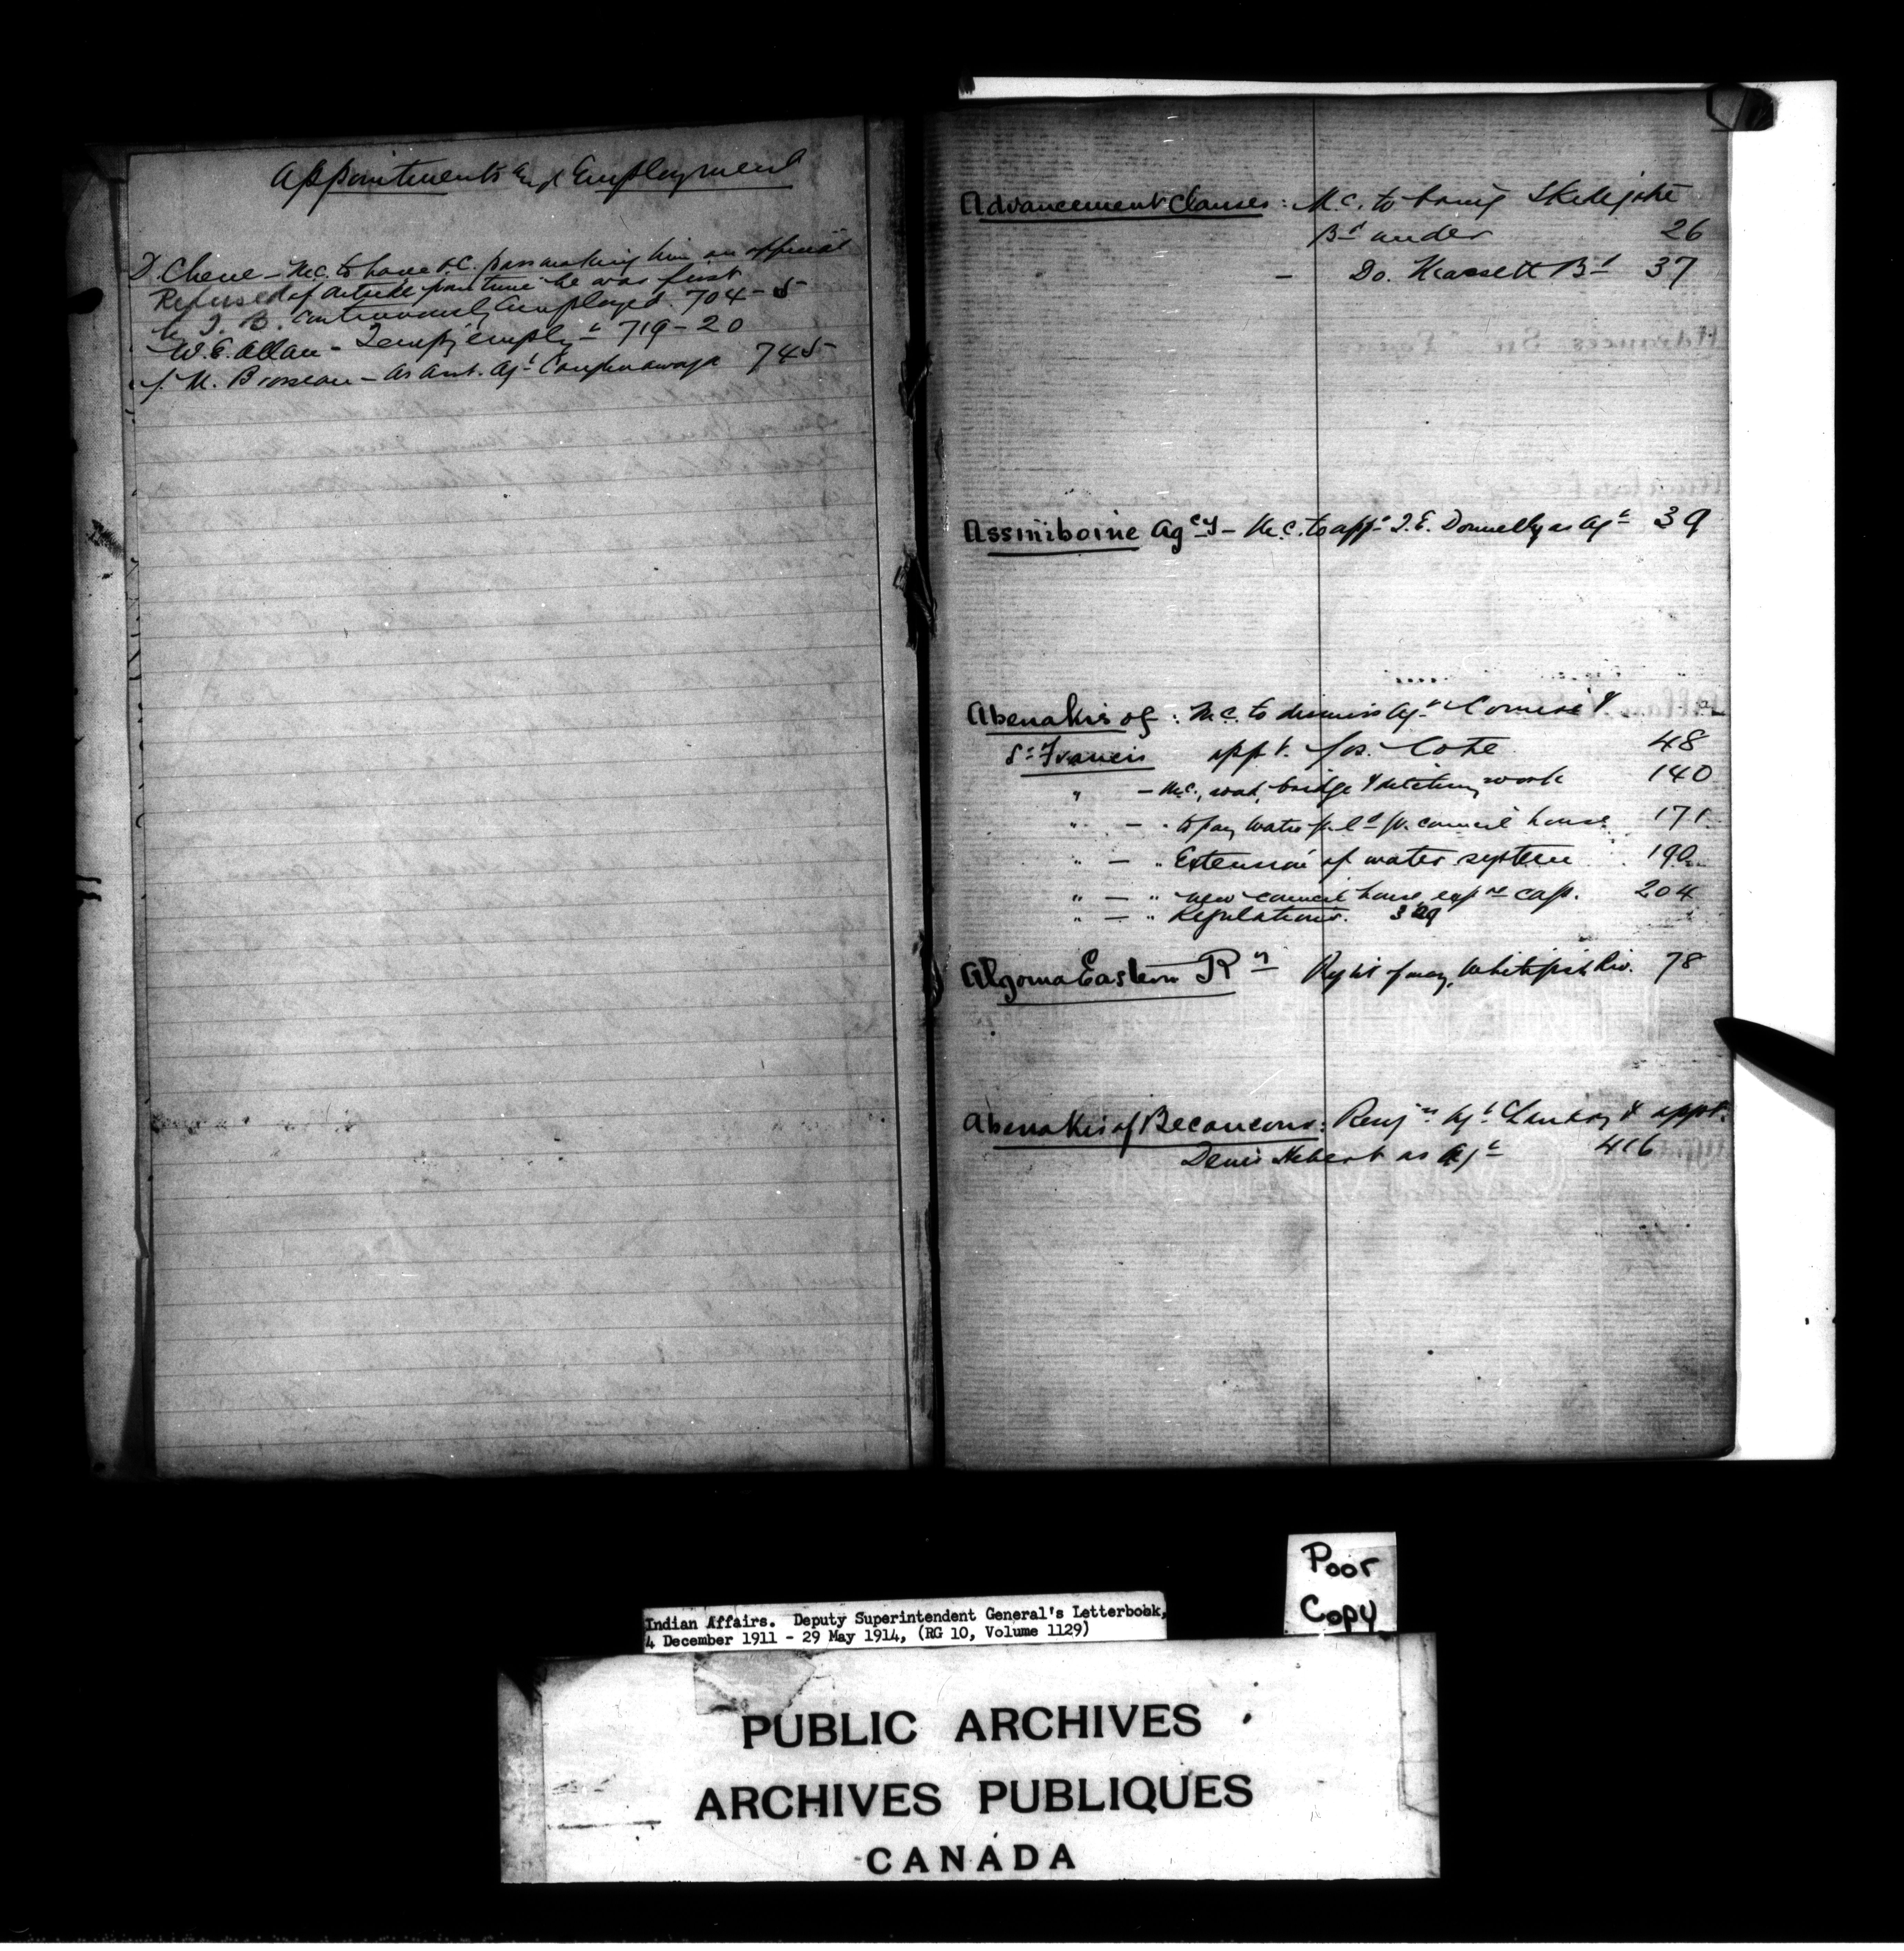 Appointments and Employment
D. Chene - M.C. to have O.C. pass making him an official
Refused of outside from time he was first
by T.B. continuously employed. 704-5
W. E. Allan - Temp'y emply't 719-20
J. M. Brosseau - As Asst. Ag't Caughnawaga 745
Advancement Clauses: M.C. to bring Skidegate
B'd under 26
- Do. Massett B'd 37
Assiniboine Ag'cy - M.C. to app't T. E. Donnelly as Ag't 39
Abenakis of : M.C. to dismiss Ag't Comire &
St Francis appt. Jos. Cote 48
" - M.C., road, bridge & ditching work 140
" - " to pay Water p. l'd for council house 171
" - " Extension of water system 190
" - " new council house, exp're cap. 204
" - " Regulations. 329
Algoma Eastern R'y Right of way, Whitefish Riv. 78
Abenakis of Becancour: Resig'n Ag't Landry & appt.
Denis Hebert as Ag't 416
Poor
Copy
Indian Affairs. Deputy Superintendent General's Letterbook,
4 December 1911 - 29 May 1914, (RG 10, Volume 1129)
PUBLIC ARCHIVES
ARCHIVES PUBLIQUES
CANADA